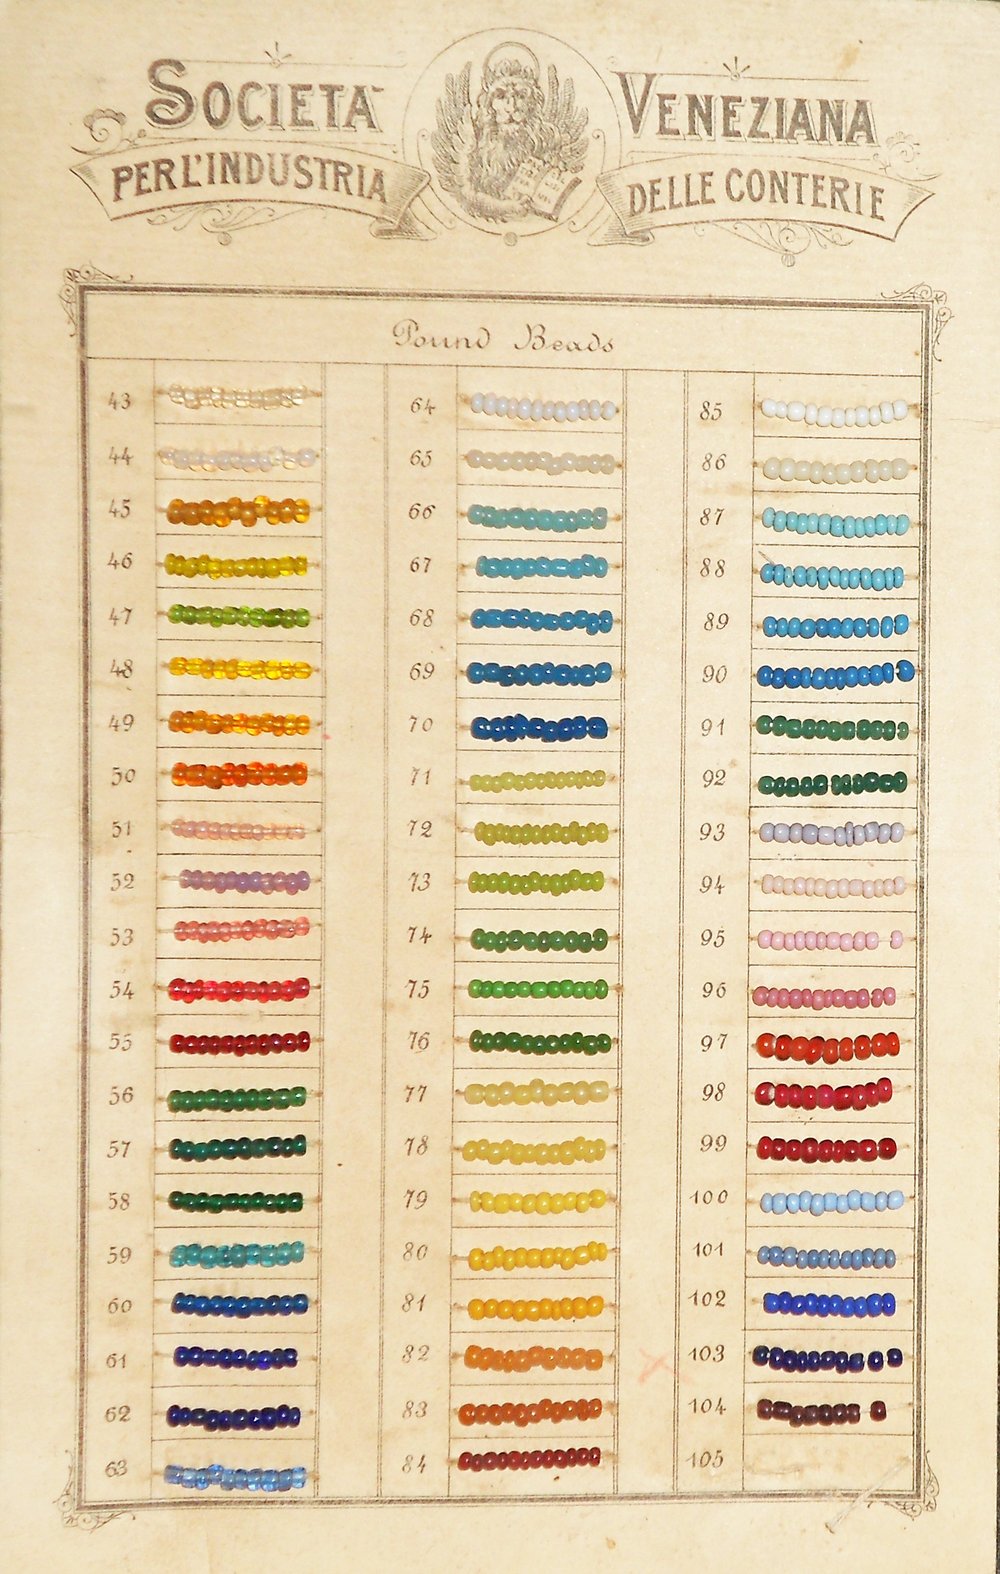 SOCIETÀ VENEZIANA
PER L'INDUSTRIA DELLE CONTERIE
Pound Beads
43 64 85
44 65 86
45 66 87
46 67 88
47 68 89
48 69 90
49 70 91
50 71 92
51 72 93
52 73 94
53 74 95
54 75 96
55 76 97
56 77 98
57 78 99
58 79 100
59 80 101
60 81 102
61 82 103
62 83 104
63 84 105